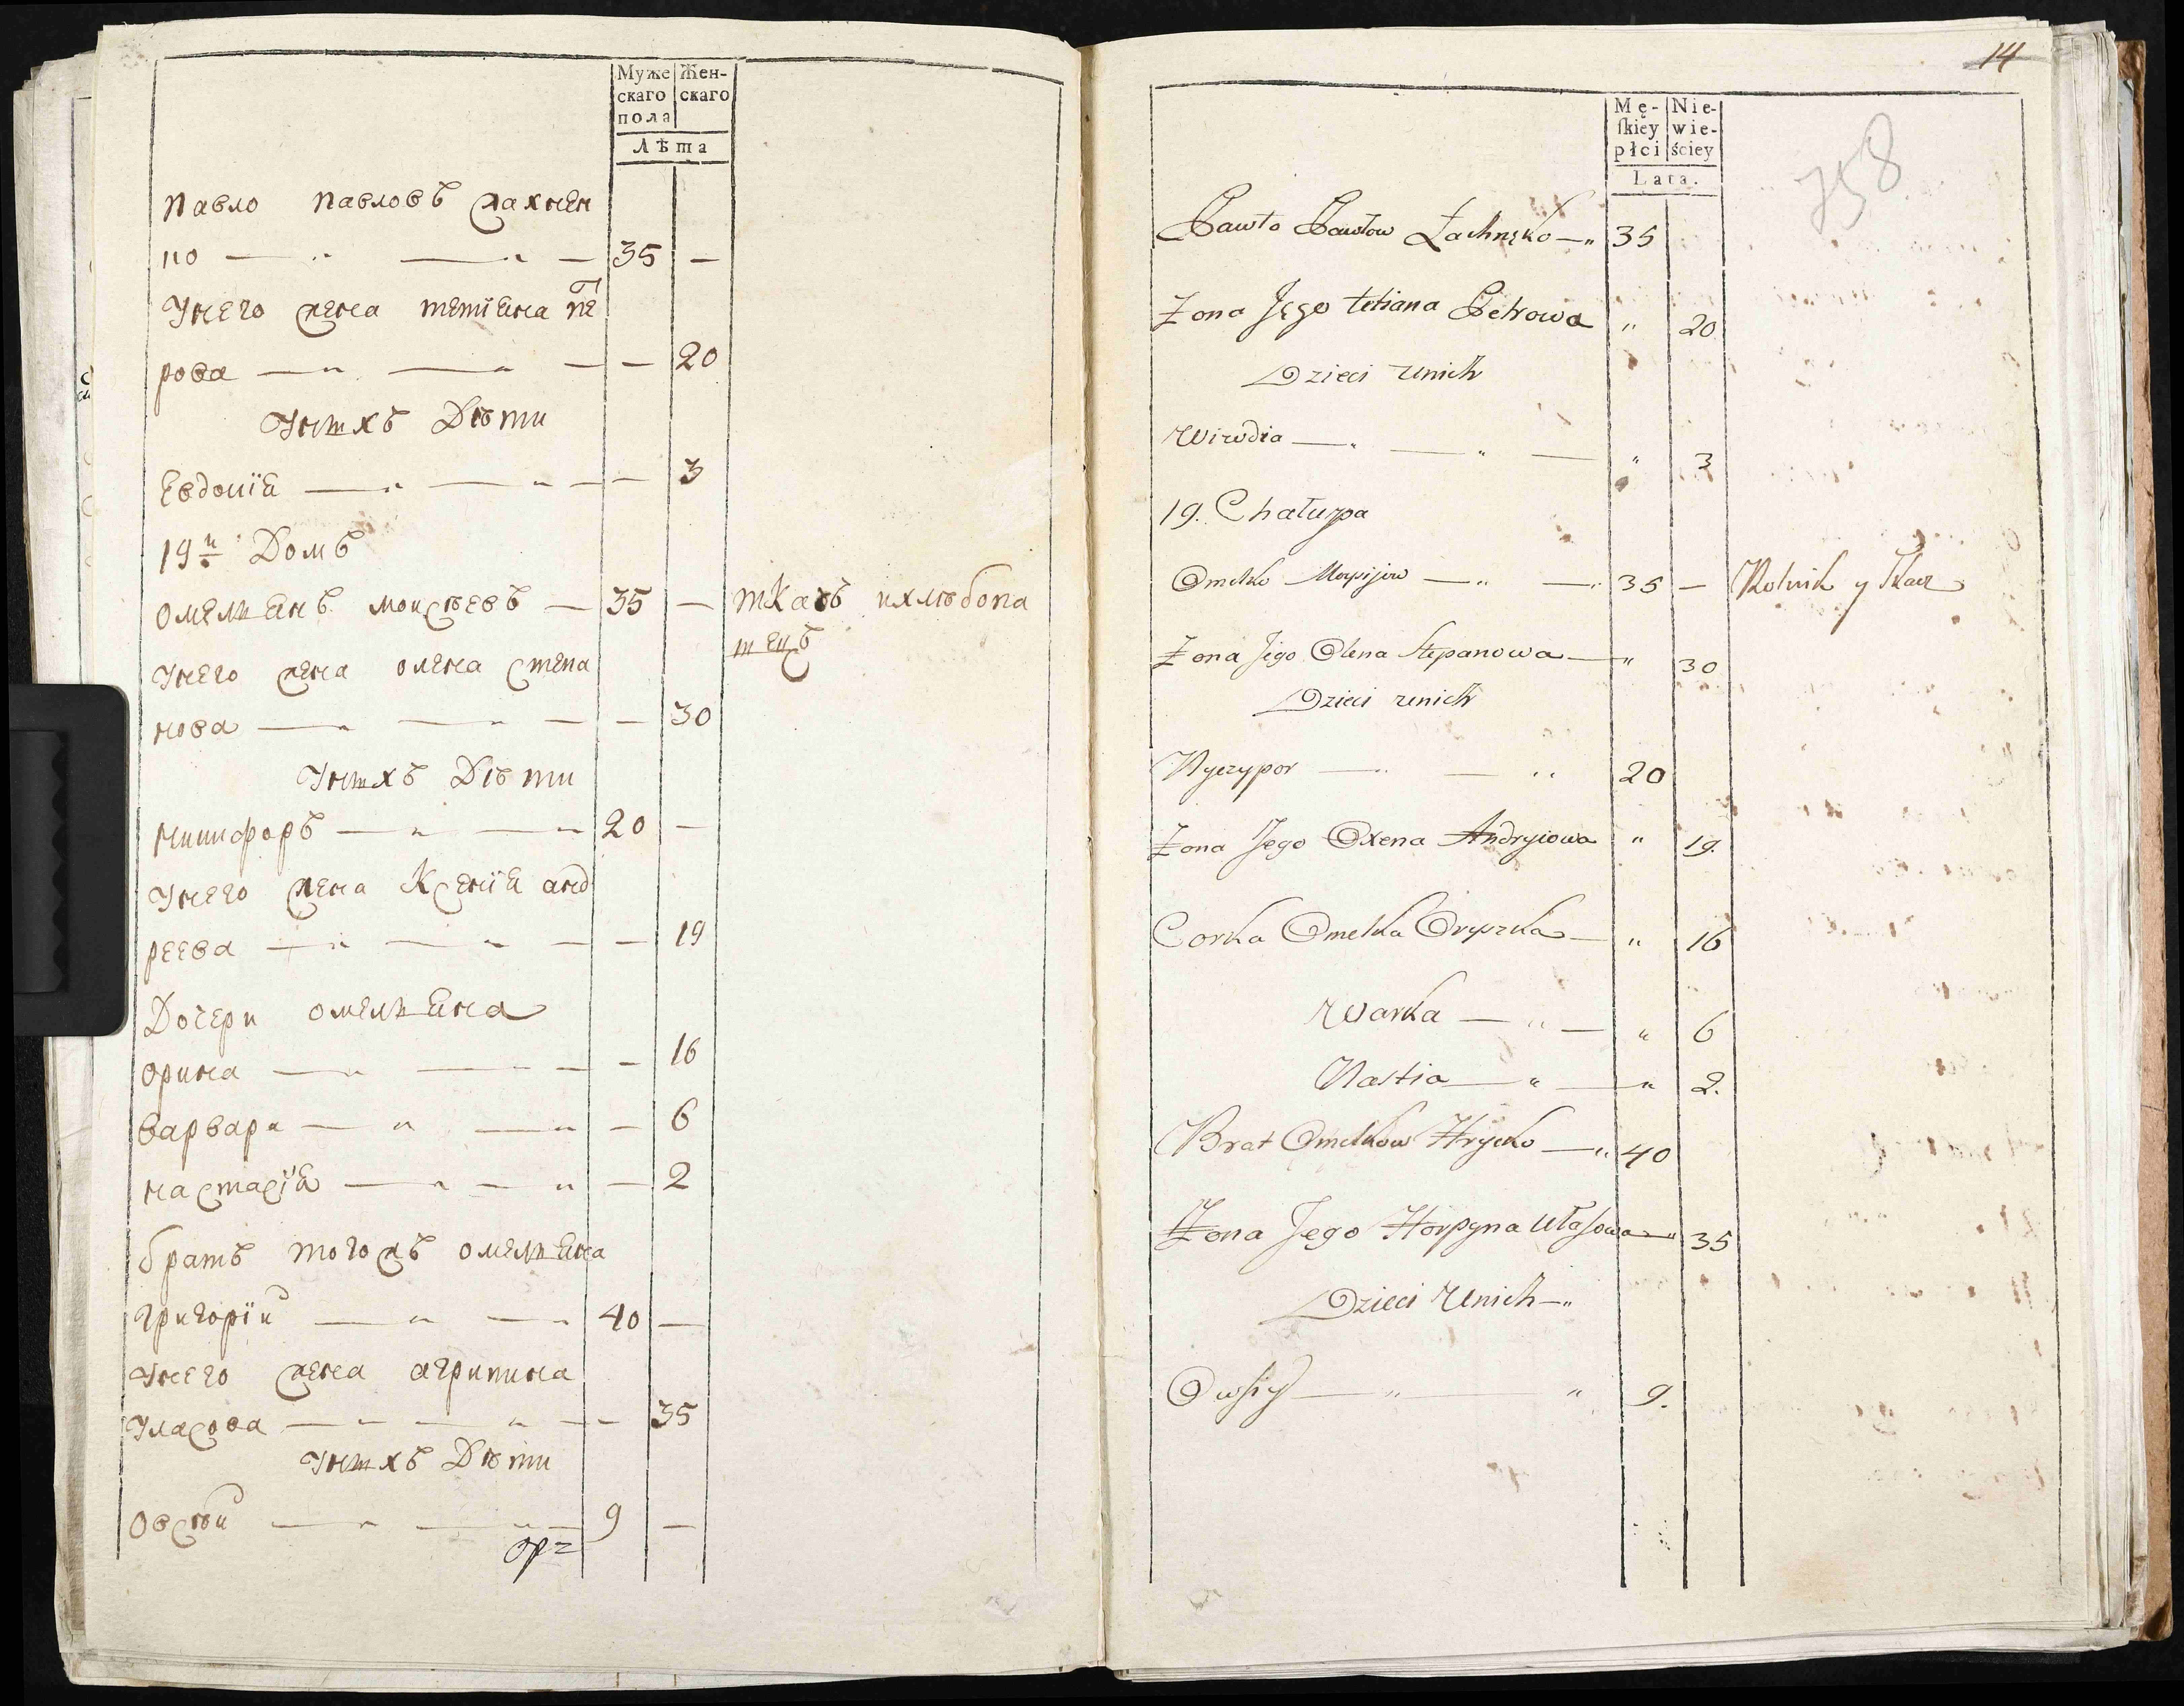 Муже Жен-
скаго скаго
пола
Лѣта
Павло Павловъ Лахнен
ко — „ — „ — 35 —
У него жена тетіана пет
рова — „ — „ — — 20
У нихъ Дѣти
Евдокіа — „ — „ — — 3
19й Домъ
Омелианъ моисѣевъ — 35 — ткачъ ихлѣбопа
шецъ
У него жена олена степа
нова — „ — „ — — 30
У нихъ Дѣти
Никифоръ — „ — „ 20 —
У него жена Ксеніа анд
реева — „ — „ — — 19
Дочери омелиана
орина — „ — „ — — 16
варвара — „ — „ — 6
настасіа — „ — „ — 2
братъ тогожъ омелиана
Григоріи — „ — „ 40 —
У него жена агрипина
Уласова — „ — „ — — 35
У нихъ Дѣти
Овсѣи — „ — „ — 9 —
14
758
Mę- Nie-
ſkiey wie-
płci ściey
Lata.
Pawło Pawłow Łachnęko —„ 35
Żona Jego tetiana Petrowa „ 20
Dzieci unich
Wiwdia — „ — „ — „ 3
19. Chałupa
Omelko Moysijow — „ — „ 35 — Rolnik y Tkacz
Żona Jego Olena Stepanowa — „ 30
Dzieci unich
Nyczypor — „ — „ 20
Żona Jego Oxena Andryiowa „ 19.
Corka Omelka Oryszka — „ 16
Warka — „ — „ 6
Nastia — „ — „ 2.
Brat Omelkow Hrycko — „ 40
Żona Jego Horpyna Ułasowa — „ 35
Dzieci Unich — „
Owsiy — „ — „ 9.